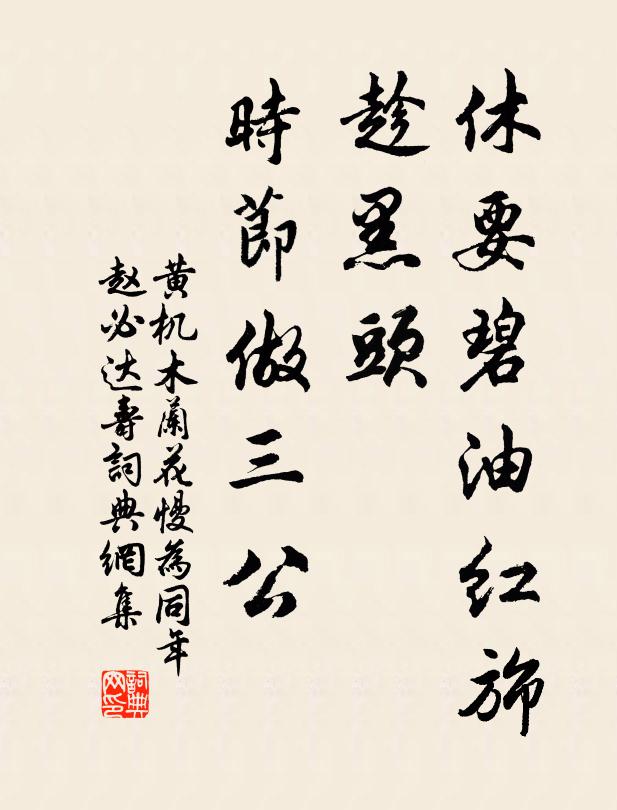 休要碧油红旆
趁黑頭
時節做三公
黄机木蘭花慢為同年
赵必达壽詞典網集
詞典网印